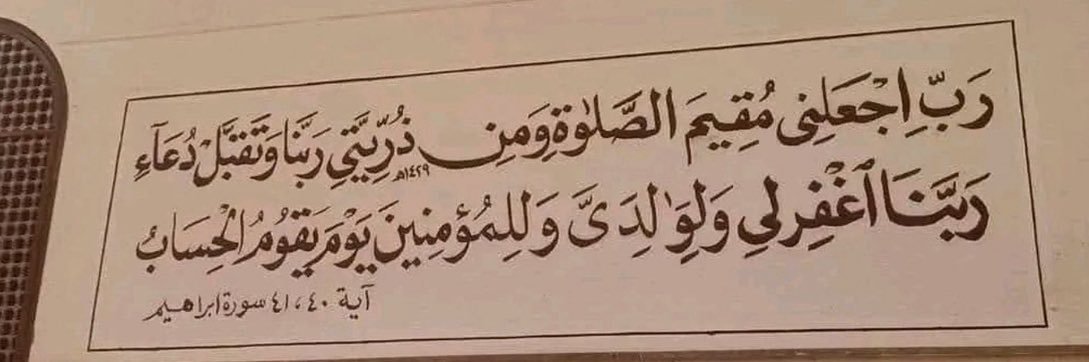 رَبِّ اِجْعَلِنِى مُقِيمَ الصَّلَوٰةِ وَمِن ذُرِّيَّتِي رَبَّنَا وَتَقَبَّلْ دُعَآءِ
١٤٢٩هـ
رَبَّنَا ٱغْفِرلِي وَلِوَٰلِدَىَّ وَلِلمُؤمِنِينَ يَوْمَ يَقُومُ الْحِسَابُ
آية ٤٠، ٤١ سورة ابراهيم